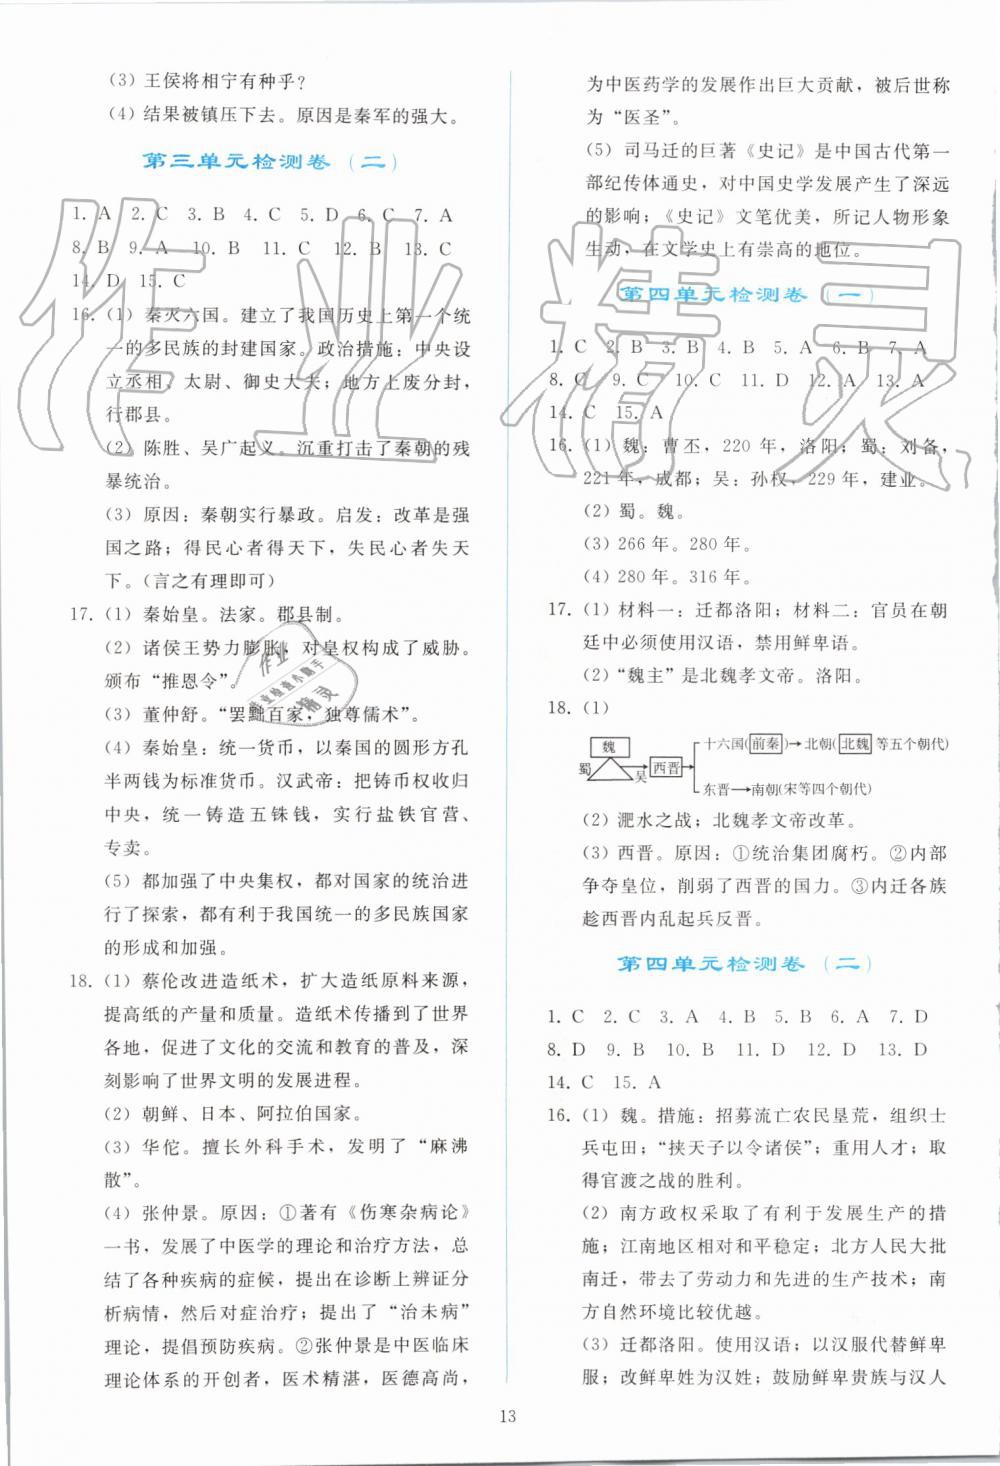 （3）王侯将相宁有种乎？
（4）结果被镇压下去。原因是秦军的强大。
第三单元检测卷（二）
1. A　2. C　3. B　4. C　5. D　6. C　7. A
8. B　9. A　10. B　11. C　12. B　13. C
14. D　15. C
16.（1）秦灭六国。建立了我国历史上第一个统
一的多民族的封建国家。政治措施：中央设
立丞相、太尉、御史大夫；地方上废分封，
行郡县。
（2）陈胜、吴广起义。沉重打击了秦朝的残
暴统治。
（3）原因：秦朝实行暴政。启发：改革是强
国之路；得民心者得天下，失民心者失天
下。（言之有理即可）
17.（1）秦始皇。法家。郡县制。
（2）诸侯王势力膨胀，对皇权构成了威胁。
颁布“推恩令”。
（3）董仲舒。“罢黜百家，独尊儒术”。
（4）秦始皇：统一货币，以秦国的圆形方孔
半两钱为标准货币。汉武帝：把铸币权收归
中央，统一铸造五铢钱，实行盐铁官营、
专卖。
（5）都加强了中央集权，都对国家的统治进
行了探索，都有利于我国统一的多民族国家
的形成和加强。
18.（1）蔡伦改进造纸术，扩大造纸原料来源，
提高纸的产量和质量。造纸术传播到了世界
各地，促进了文化的交流和教育的普及，深
刻影响了世界文明的发展进程。
（2）朝鲜、日本、阿拉伯国家。
（3）华佗。擅长外科手术，发明了“麻沸
散”。
（4）张仲景。原因：①著有《伤寒杂病论》
一书，发展了中医学的理论和治疗方法，总
结了各种疾病的症候，提出在诊断上辨证分
析病情，然后对症治疗；提出了“治未病”
理论，提倡预防疾病。②张仲景是中医临床
理论体系的开创者，医术精湛，医德高尚，
为中医药学的发展作出巨大贡献，被后世称
为“医圣”。
（5）司马迁的巨著《史记》是中国古代第一
部纪传体通史，对中国史学发展产生了深远
的影响；《史记》文笔优美，所记人物形象
生动，在文学史上有崇高的地位。
第四单元检测卷（一）
1. C　2. B　3. B　4. B　5. A　6. B　7. A
8. C　9. C　10. C　11. D　12. A　13. A
14. C　15. A
16.（1）魏：曹丕，220年，洛阳；蜀：刘备，
221年，成都；吴：孙权，229年，建业。
（2）蜀。魏。
（3）266年。280年。
（4）280年。316年。
17.（1）材料一：迁都洛阳；材料二：官员在朝
廷中必须使用汉语，禁用鲜卑语。
（2）“魏主”是北魏孝文帝。洛阳。
18.（1）
魏
蜀　吴　→　西晋
十六国（前秦）→北朝（北魏等五个朝代）
东晋→南朝（宋等四个朝代）
（2）淝水之战；北魏孝文帝改革。
（3）西晋。原因：①统治集团腐朽。②内部
争夺皇位，削弱了西晋的国力。③内迁各族
趁西晋内乱起兵反晋。
第四单元检测卷（二）
1. C　2. C　3. A　4. B　5. B　6. A　7. D
8. D　9. B　10. B　11. D　12. D　13. D
14. C　15. A
16.（1）魏。措施：招募流亡农民垦荒，组织士
兵屯田；“挟天子以令诸侯”；重用人才；取
得官渡之战的胜利。
（2）南方政权采取了有利于发展生产的措
施；江南地区相对和平稳定；北方人民大批
南迁，带去了劳动力和先进的生产技术；南
方自然环境比较优越。
（3）迁都洛阳。使用汉语；以汉服代替鲜卑
服；改鲜卑姓为汉姓；鼓励鲜卑贵族与汉人
13
作业精灵
作业
作业检查小助手
精灵